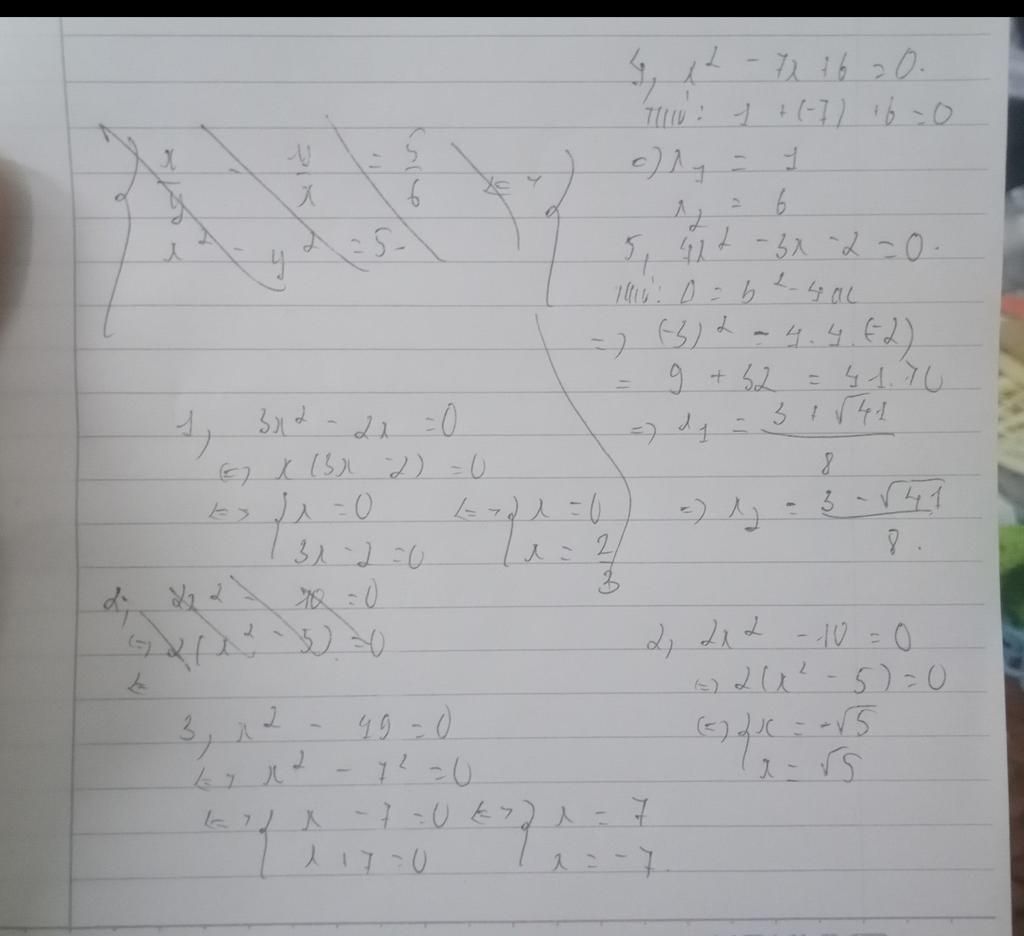 x/y - y/x = 5/6 <=>
x² - y² = 5
1, 3x² - 2x = 0
<=> x(3x - 2) = 0
<=> { x = 0 <=> { x = 0
3x - 2 = 0 x = 2/3
2, 2x² - 10 = 0
<=> 2(x² - 5) = 0
<=
3, x² - 49 = 0
<=> x² - 7² = 0
<=> { x - 7 = 0 <=> { x = 7
x + 7 = 0 x = -7
4, x² - 7x + 6 = 0.
1 + (-7) + 6 = 0
x₁ = 1
x₂ = 6
5, 4x² - 3x - 2 = 0.
Δ = b² - 4ac
=> (-3)² - 4.4.(-2)
= 9 + 32 = 41 > 0
=> x₁ = (3 + √41)/8
=> x₂ = (3 - √41)/8.
2, 2x² - 10 = 0
<=> 2(x² - 5) = 0
<=> { x = -√5
x = √5